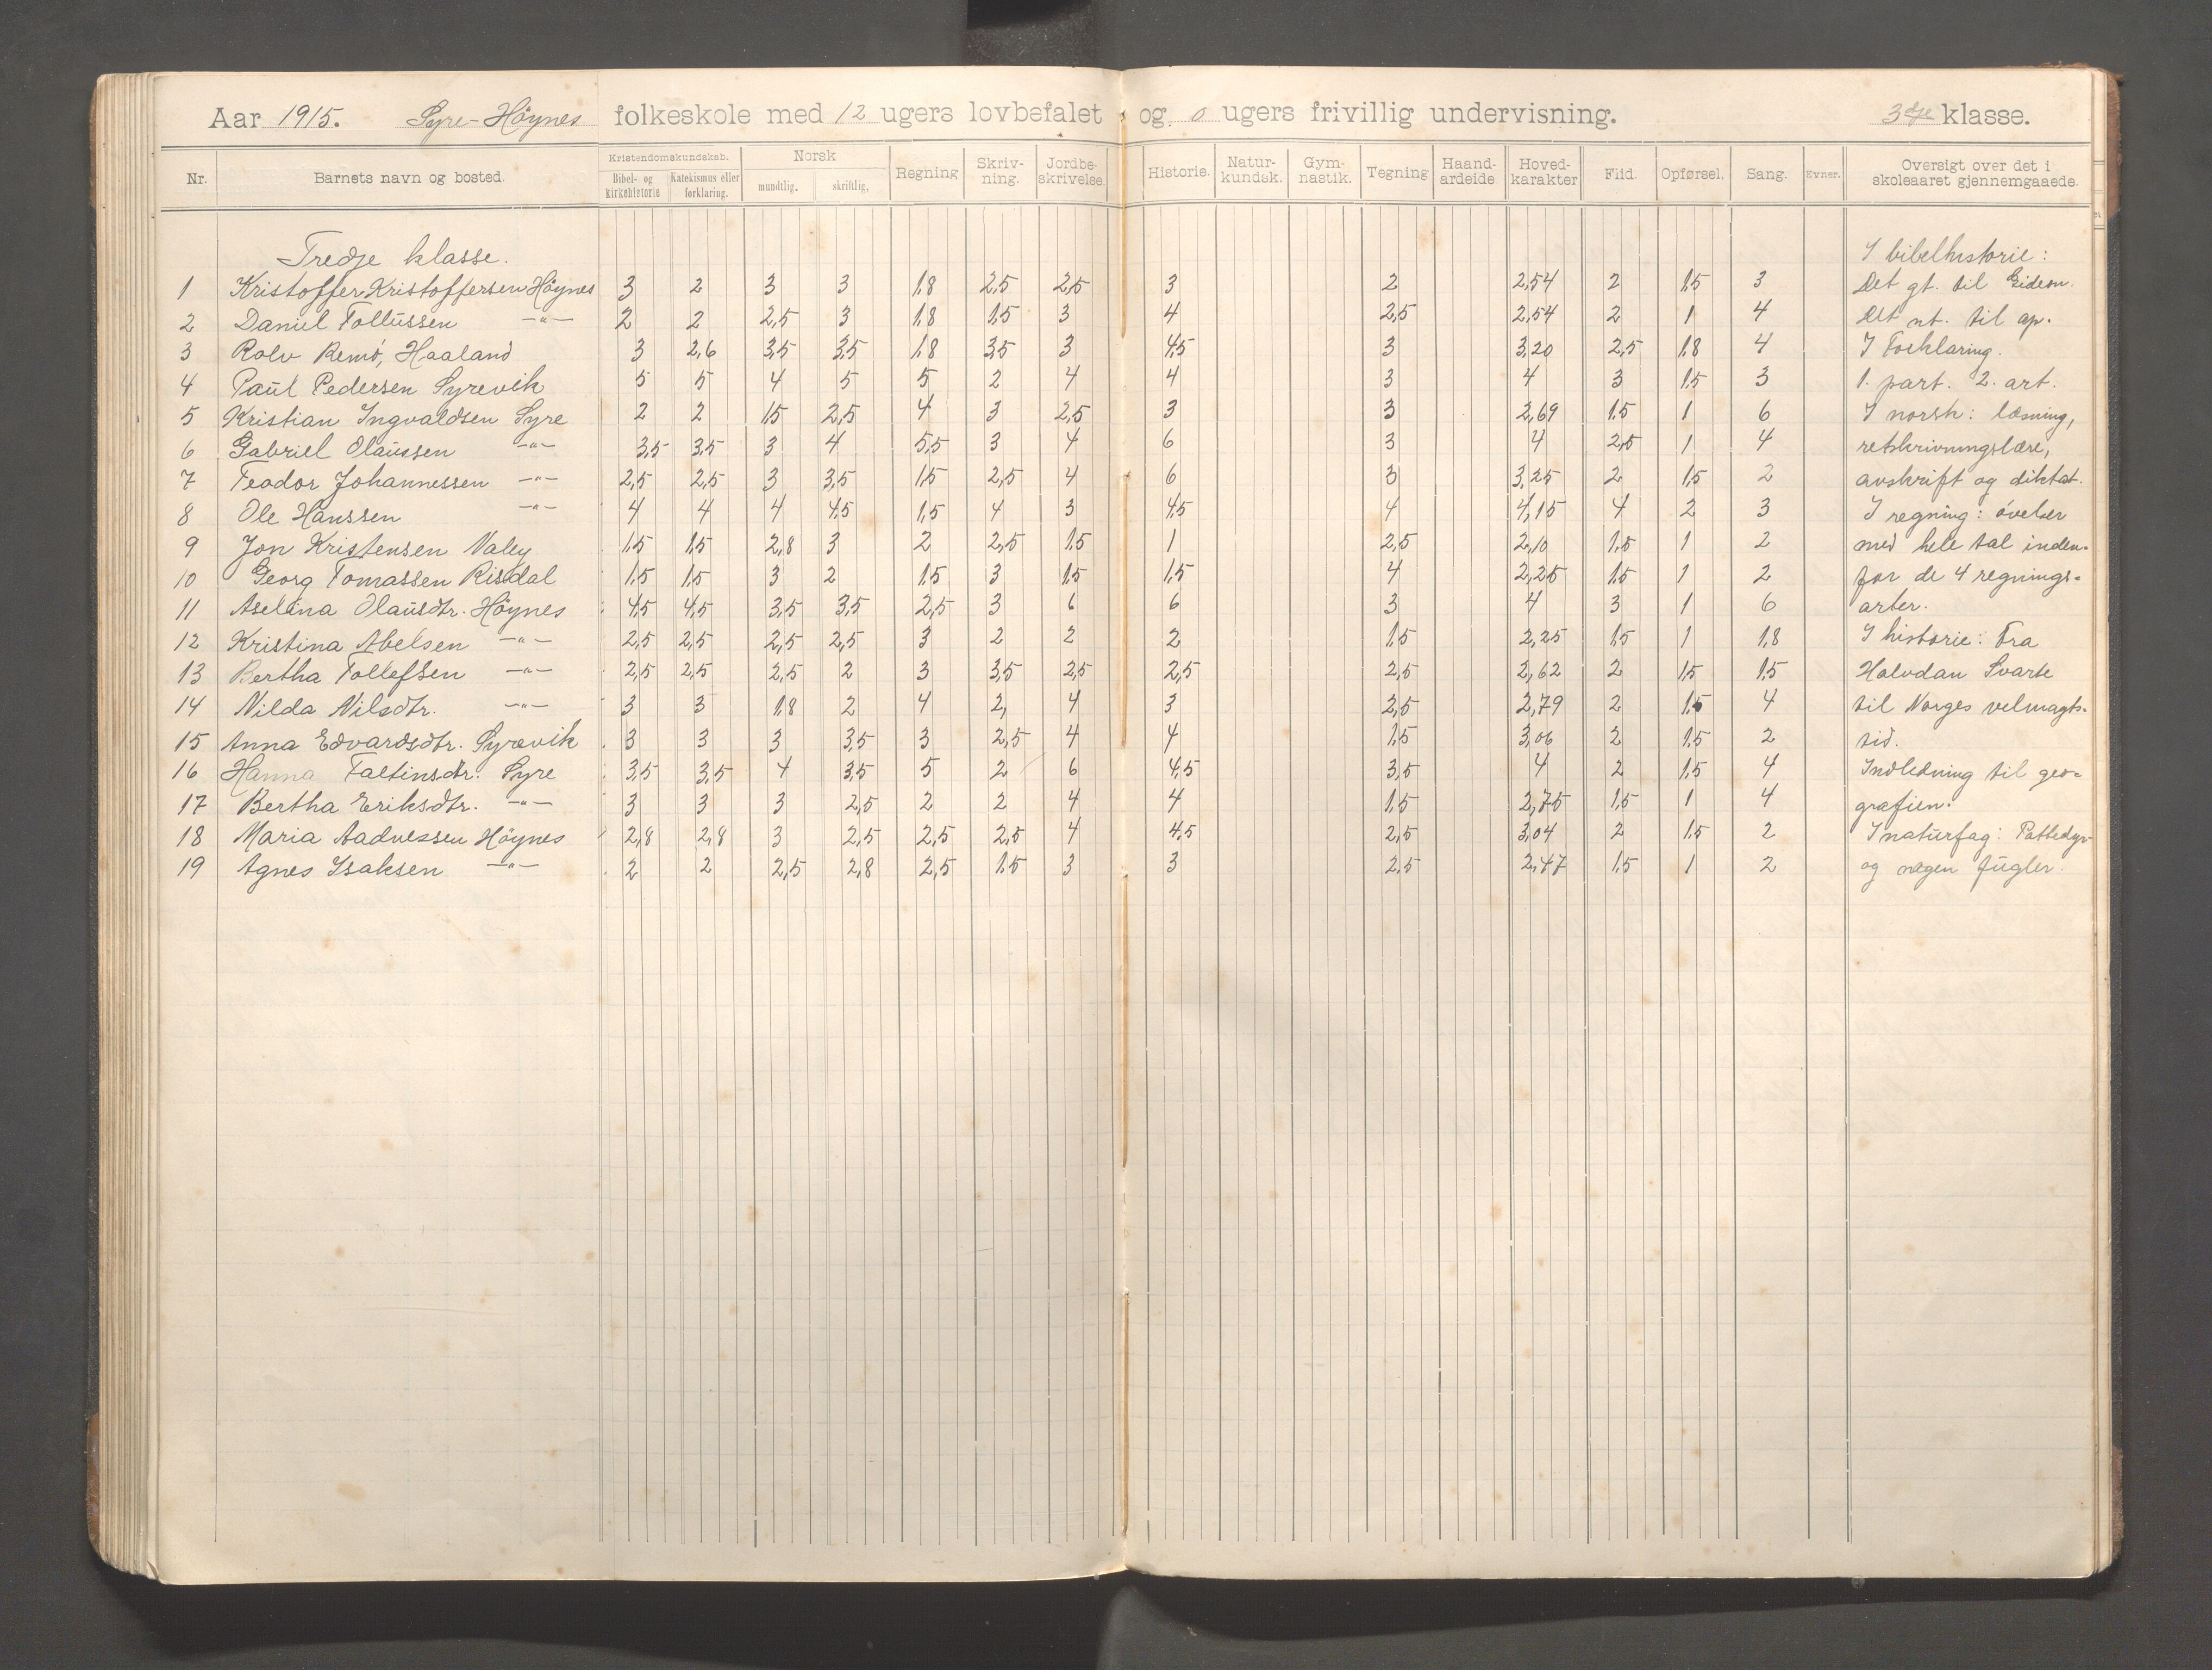 Aar 1915. Syre-Höynes folkeskole med 12 ugers lovbefalet og 0 ugers frivillig undervisning. 3dje klasse.
Nr. Barnets navn og bosted. Kristendomskundskab. Bibel- og kirkehistorie Katekismus eller forklaring. Norsk mundtlig. skriftlig, Regning Skriv-ning. Jordbe-skrivelse. Historie. Natur-kundsk. Gym-nastik. Tegning Haand-ardeide Hoved-karakter Flid. Opførsel. Sang. Evner. Oversigt over det i skoleaaret gjennemgaaede.
Tredje klasse. I bibelhistorie:
1 Kristoffer Kristoffersen Höynes 3 2 3 3 1,8 2,5 2,5 3 2 2,54 2 1,5 3 Det gt. til Gideon.
2 Daniel Tollussen -"- 2 2 2,5 3 1,8 1,5 3 4 2,5 2,54 2 1 4 Det nt. til ap.
3 Rolv Remö, Haaland 3 2,6 3,5 3,5 1,8 3,5 3 4,5 3 3,20 2,5 1,8 4 I Forklaring.
4 Paul Pedersen Syrevik 5 5 4 5 5 2 4 4 3 4 3 1,5 3 1. part. 2. art.
5 Kristian Ingvaldsen Syre 2 2 1,5 2,5 4 3 2,5 3 3 2,69 1,5 1 6 I norsk: læsning,
6 Gabriel Olaussen -"- 3,5 3,5 3 4 5,5 3 4 6 3 4 2,5 1 4 retskrivningslære,
7 Teodor Johannessen -"- 2,5 2,5 3 3,5 1,5 2,5 4 6 3 3,25 2 1,5 2 avskrift og diktat.
8 Ole Hanssen -"- 4 4 4 4,5 1,5 4 3 4,5 4 4,15 4 2 3 I regning: övelser
9 Jon Kristensen Valey 1,5 1,5 2,8 3 2 2,5 1,5 1 2,5 2,10 1,5 1 2 med hele tal inden-
10 Georg Tomassen Risdal 1,5 1,5 3 2 1,5 3 1,5 1,5 4 2,25 1,5 1 2 for de 4 regnings-
11 Aselina Olausdtr. Höynes 4,5 4,5 3,5 3,5 2,5 3 6 6 3 4 3 1 6 arter.
12 Kristina Abelsen -"- 2,5 2,5 2,5 2,5 3 2 2 2 1,5 2,25 1,5 1 1,8 I historie: Fra
13 Bertha Tollefsen -"- 2,5 2,5 2,5 2 3 3,5 2,5 2,5 2,5 2,62 2 1,5 1,5 Halvdan Svarte
14 Nilda Nilsdtr. -"- 3 3 1,8 2 4 2, 4 3 2,5 2,79 2 1,5 4 til Norges velmagts-
15 Anna Edvardsdtr. Syrevik 3 3 3 3,5 3 2,5 4 4 1,5 3,06 2 1,5 2 tid.
16 Hanna Faltinsdtr. Syre 3,5 3,5 4 3,5 5 2 6 4,5 3,5 4 2 1,5 4 Indledning til geo-
17 Bertha Eriksdtr. -"- 3 3 3 2,5 2 2 4 4 1,5 2,75 1,5 1 4 grafien.
18 Maria Aadnessen Höynes 2,8 2,8 3 2,5 2,5 2,5 4 4,5 2,5 3,04 2 1,5 2 I naturfag: Pattedyr
19 Agnes Isaksen -"- 2 2 2,5 2,8 2,5 1,5 3 3 2,5 2,47 1,5 1 2 og nogen fugler.